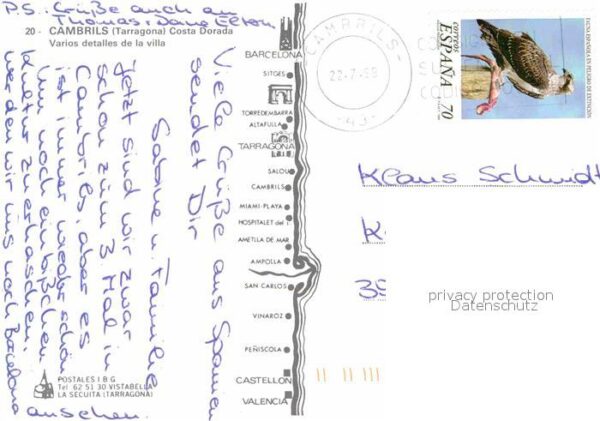 P.S.: Grüße auch an
Thomas + Deine Eltern.
20 - CAMBRILS (Tarragona) Costa Dorada
Varios detalles de la villa
Viele Grüße aus Spanien
sendet Dir
Sabine u. Familie
Jetzt sind wir zwar
schon zum 3 Mal in
Cambrils, aber es
ist immer wieder schön
um noch ein bißchen
Kultur zu erhaschen,
werden wir uns noch Barcelona
anschauen.
POSTALES I B G
Tel 62 51 30 VISTABELLA
LA SECUITA (TARRAGONA)
BARCELONA
SITGES
TORREDEMBARRA
ALTAFULLA
TARRAGONA
SALOU
CAMBRILS
MIAMI-PLAYA
HOSPITALET del I.
AMETLLA DE MAR
AMPOLLA
SAN CARLOS
VINAROZ
PEÑISCOLA
CASTELLON
VALENCIA
CAMBRILS
22-7-98
CORREOS
ESPAÑA
70
FAUNA ESPAÑOLA EN PELIGRO DE EXTINCION
Klaus Schmidt
K
39
privacy protection
Datenschutz